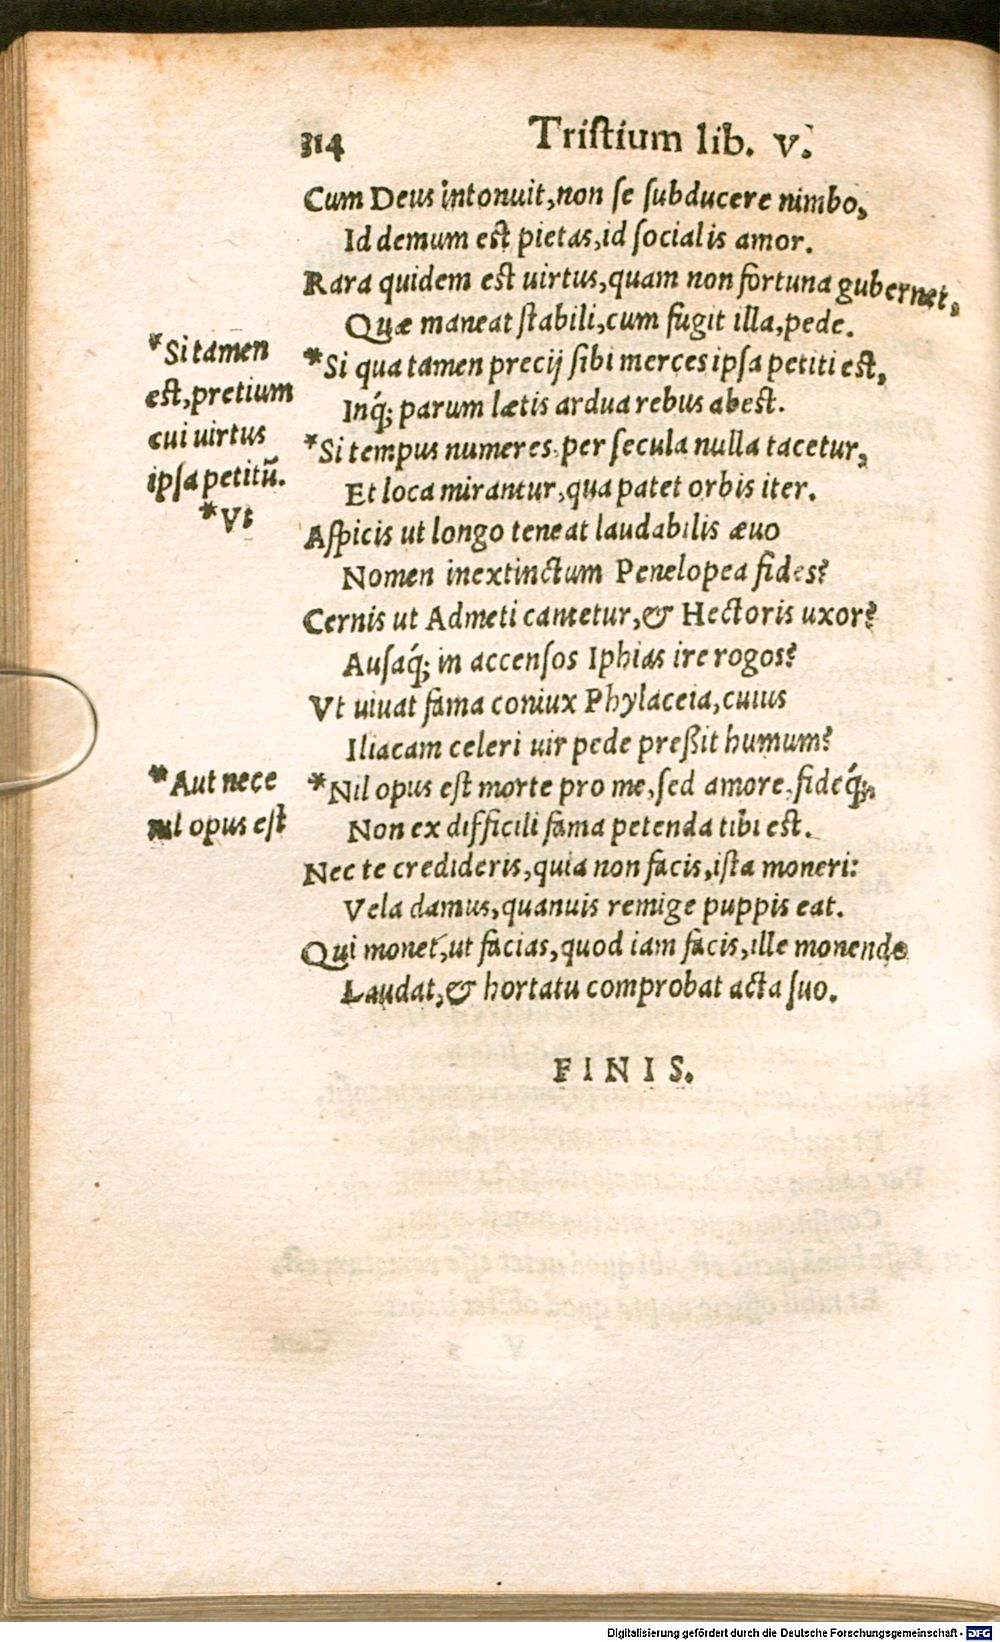 314 Tristium lib. V.
Cum Deus intonuit, non se subducere nimbo,
Id demum est pietas, id socialis amor.
Rara quidem est uirtus, quam non fortuna gubernet,
Quæ maneat stabili, cum fugit illa, pede.
*Si qua tamen precij sibi merces ipsa petiti est,
Inq́; parum lætis ardua rebus abest.
*Si tempus numeres, per secula nulla tacetur,
Et loca mirantur, qua patet orbis iter.
Aspicis ut longo teneat laudabilis æuo
Nomen inextinctum Penelopea fides?
Cernis ut Admeti cantetur, & Hectoris uxor?
Ausaq́; in accensos Iphias ire rogos?
Vt uiuat fama coniux Phylaceia, cuius
Iliacam celeri uir pede preßit humum?
*Nil opus est morte pro me, sed amore, fideq́;,
Non ex difficili fama petenda tibi est.
Nec te credideris, quia non facis, ista moneri:
Vela damus, quanuis remige puppis eat.
Qui monet, ut facias, quod iam facis, ille monendo
Laudat, & hortatu comprobat acta suo.
FINIS.
*Si tamen
est, pretium
cui uirtus
ipsa petitū.
*Vt
*Aut nece
nil opus est
Digitalisierung gefördert durch die Deutsche Forschungsgemeinschaft - DFG